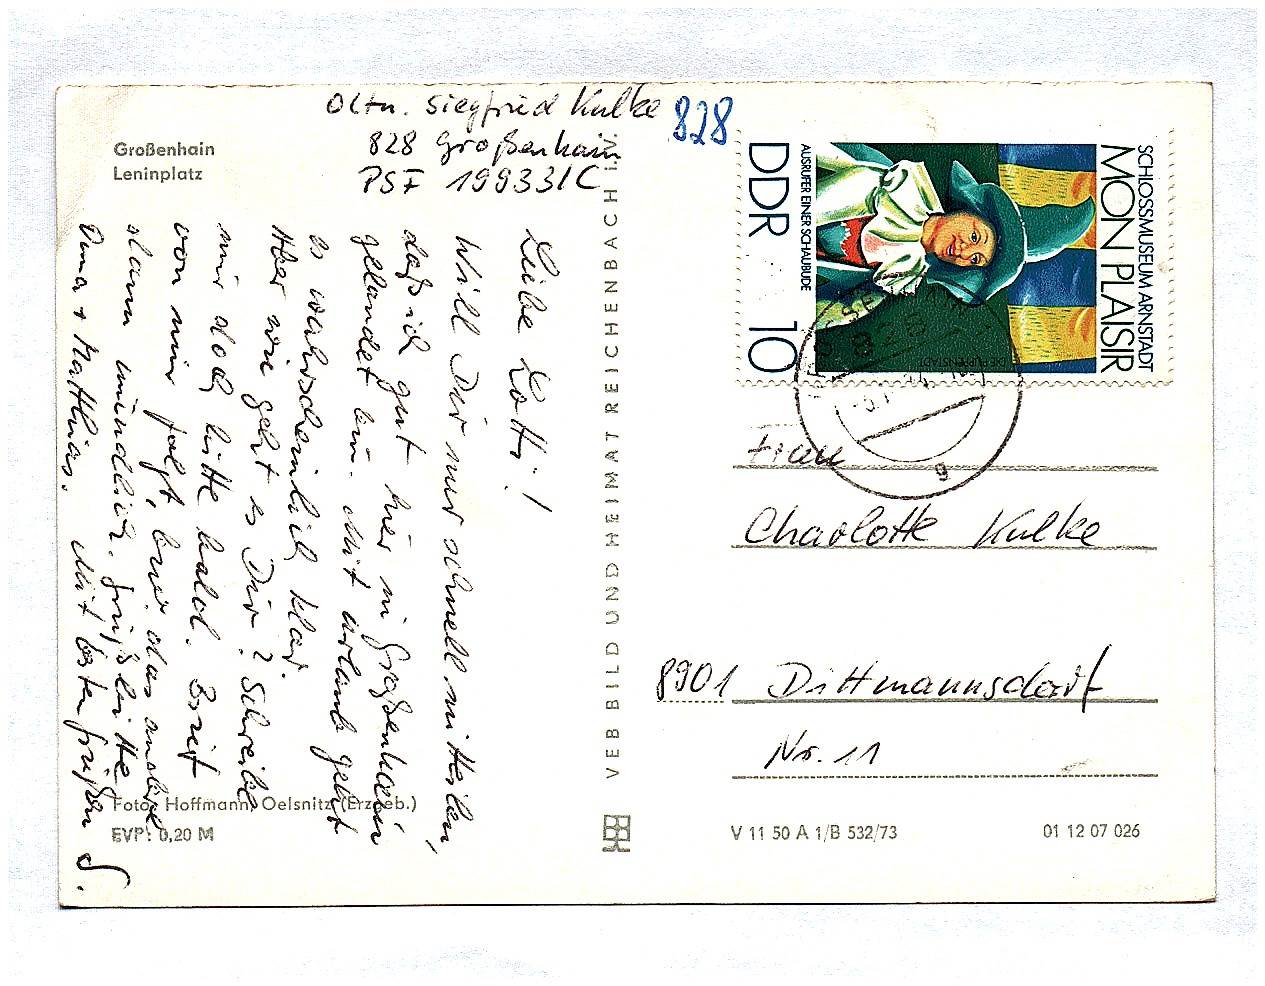 Großenhain
Leninplatz
Oltn. Siegfried Kulke
828 Großenhain
PSF 19933/C
828
Liebe Lotti!
Will Dir nur schnell mitteilen,
daß ich gut hier in Großenhain
gelandet bin. Mit Urlaub geht
es wahrscheinlich klar.
Aber wie geht es Dir? Schreibe
mir doch bitte bald. Brief
von mir folgt, bzw. das andere
dann mündlich. Grüß bitte
Oma + Matthias. Mit besten Grüßen S.
Foto: Hoffmann, Oelsnitz (Erzgeb.)
EVP: 0,20 M
VEB BILD UND HEIMAT REICHENBACH i. V.
SCHLOSSMUSEUM ARNSTADT
MON PLAISIR
AUSRUFER EINER SCHAUBUDE
DDR 10
Frau
Charlotte Kulke
8901 Dittmannsdorf
Nr. 11
V 11 50 A 1/B 532/73
01 12 07 026